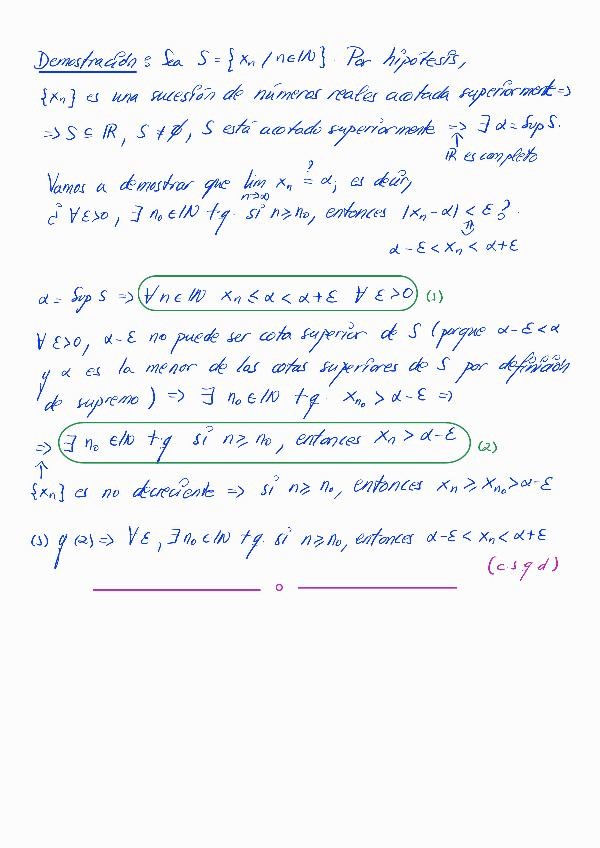 Demostración: Sea S = {xₙ / n ∈ ℕ}. Por hipótesis,
{xₙ} es una sucesión de números reales acotada superiormente ⇒
⇒ S ⊆ ℝ, S ≠ ∅, S está acotado superiormente ⇒ ∃ α = Sup S.
↑
ℝ es completo
Vamos a demostrar que lim n→∞ xₙ ≟ α, es decir,
¿ ∀ ε>0, ∃ n₀ ∈ ℕ t.q. si n ≥ n₀, entonces |xₙ - α| < ε ?
⇕
α - ε < xₙ < α + ε
α = Sup S ⇒ ∀ n ∈ ℕ xₙ ≤ α < α + ε ∀ ε > 0 (1)
∀ ε>0, α - ε no puede ser cota superior de S (porque α - ε < α
y α es la menor de las cotas superiores de S por definición
de supremo) ⇒ ∃ n₀ ∈ ℕ t.q. xₙ₀ > α - ε ⇒
⇒ ∃ n₀ ∈ ℕ t.q si n ≥ n₀, entonces xₙ > α - ε (2)
↑
{xₙ} es no decreciente ⇒ si n ≥ n₀, entonces xₙ ≥ xₙ₀ > α - ε
(1) y (2) ⇒ ∀ ε, ∃ n₀ ∈ ℕ t.q. si n ≥ n₀, entonces α - ε < xₙ < α + ε
(c.s.q.d)